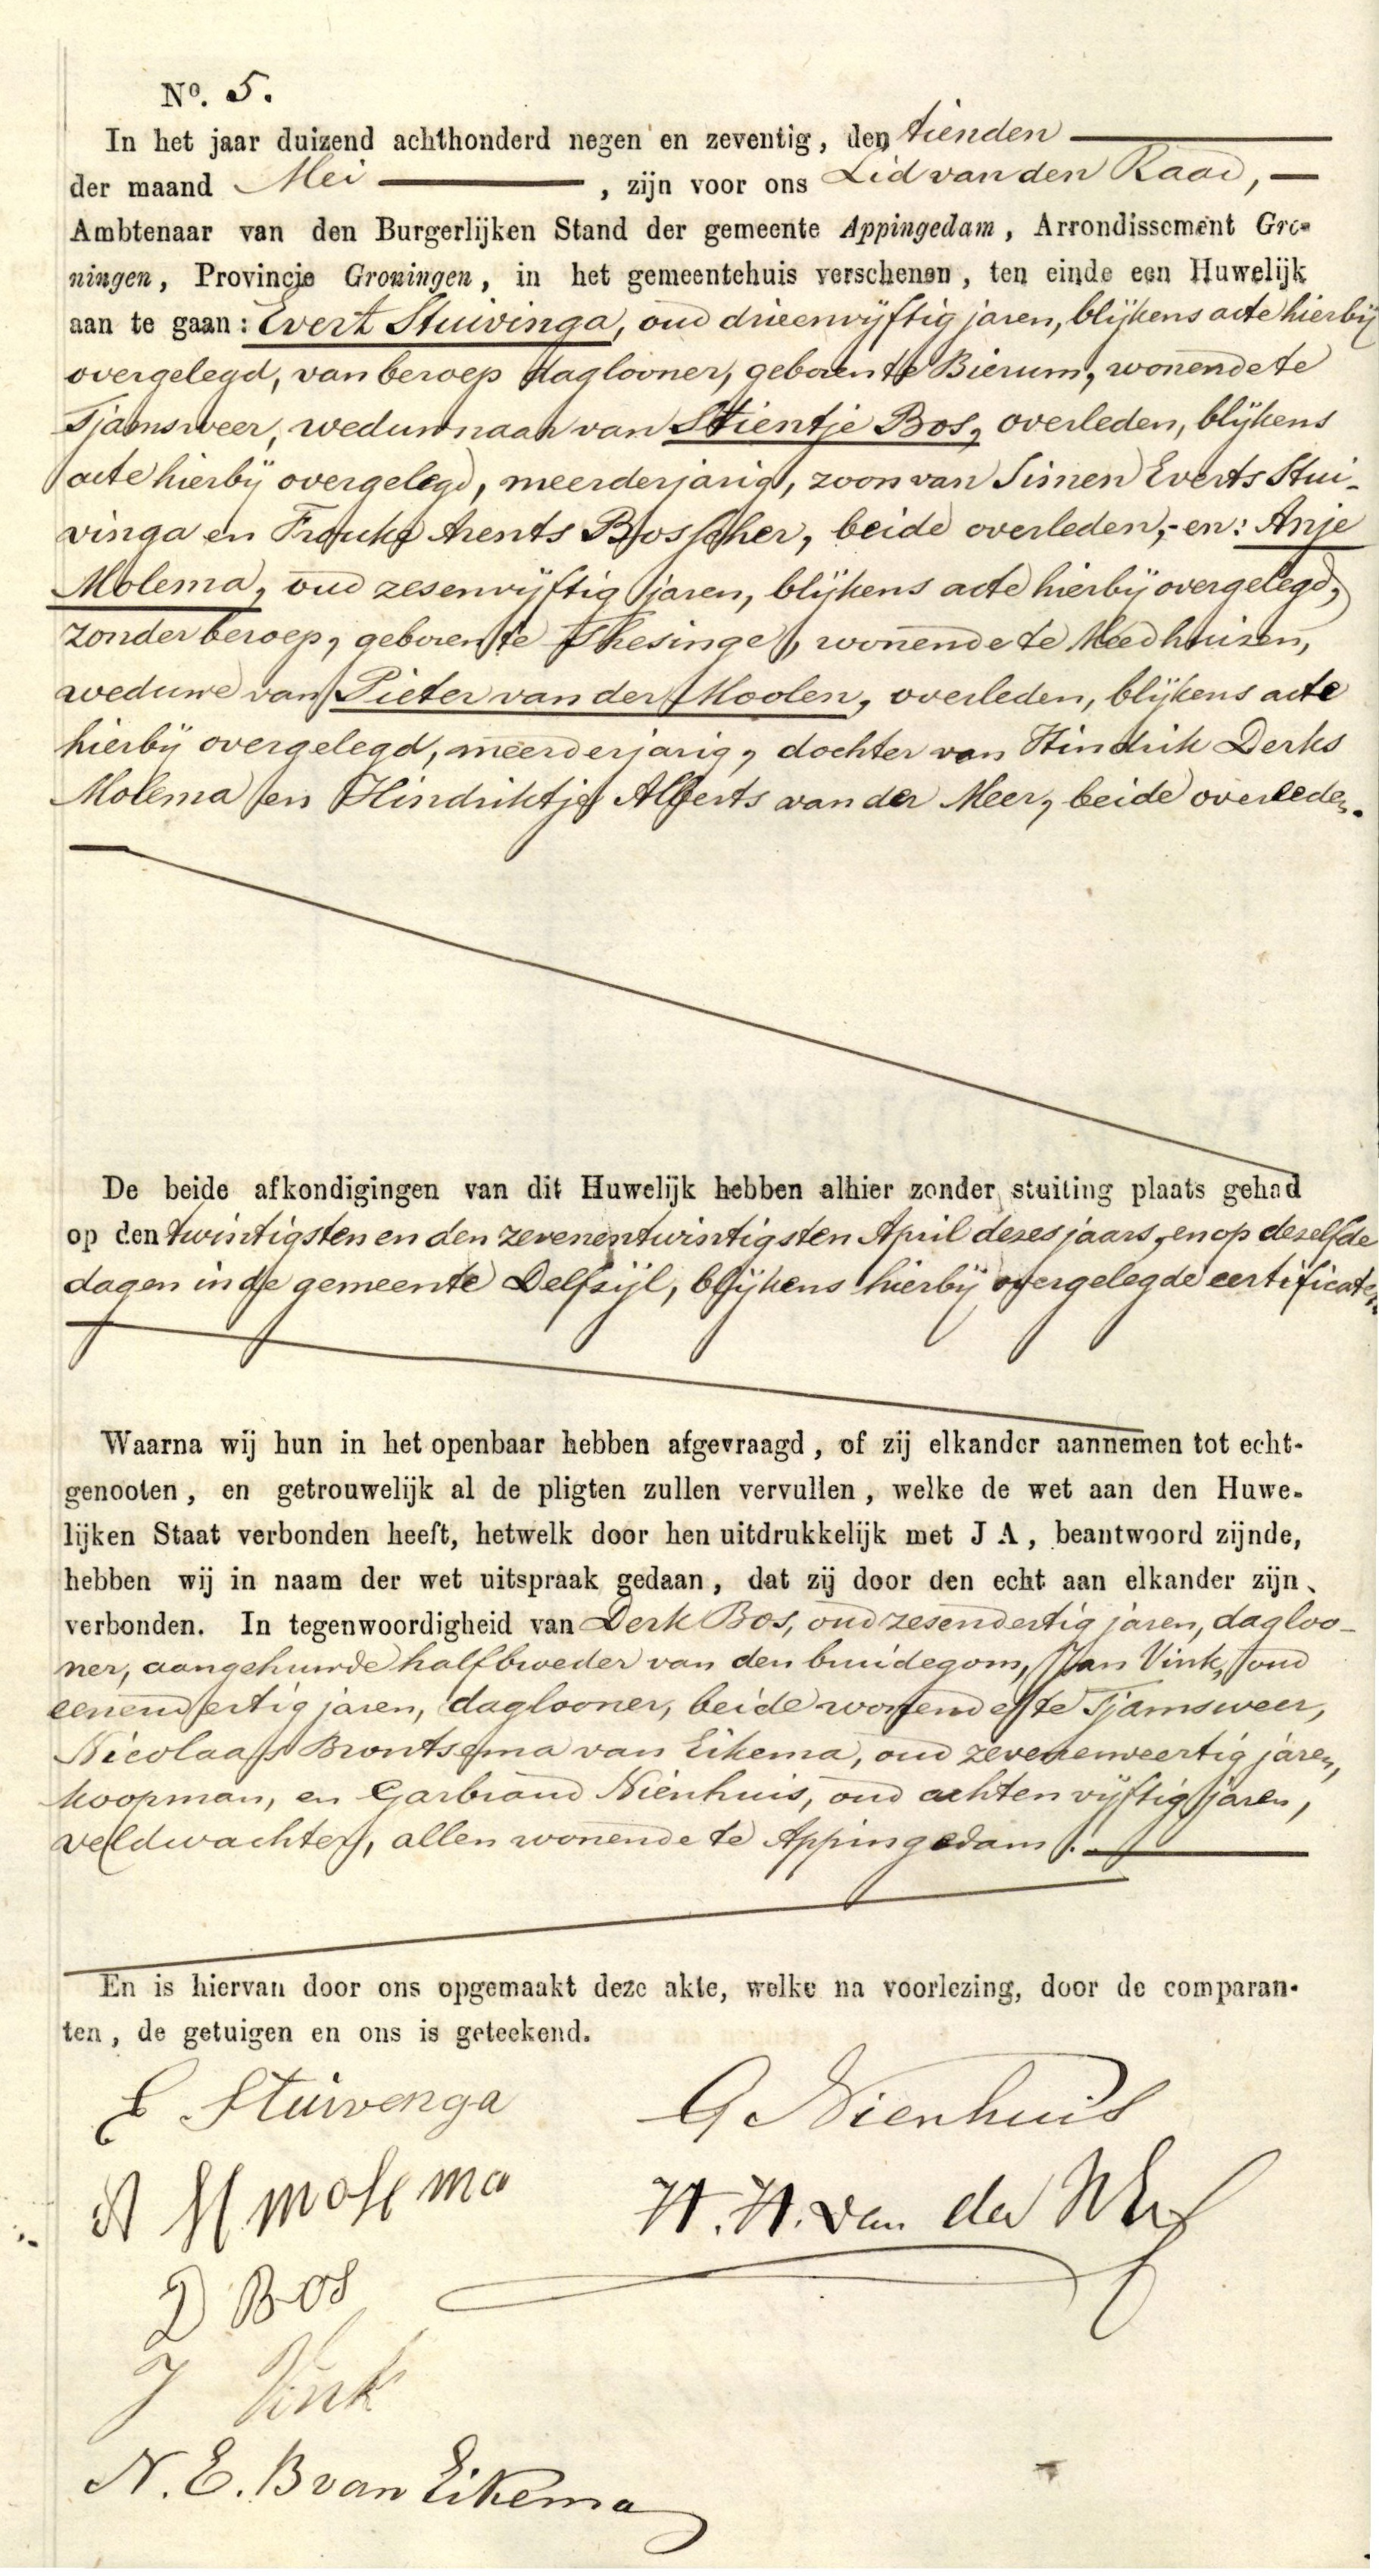 No. 5.
In het jaar duizend achthonderd negen en zeventig, den tienden
der maand Mei, zijn voor ons Lid van den Raad,
Ambtenaar van den Burgerlijken Stand der gemeente Appingedam, Arrondissement Gro-
ningen, Provincie Groningen, in het gemeentehuis verschenen, ten einde een Huwelijk
aan te gaan: Evert Stuivinga, oud drieenvijftig jaren, blijkens acte hierbij
overgelegd, van beroep daglooner, geboren te Bierum, wonende te
Tjamsweer, weduwnaar van Stientje Bos, overleden, blijkens
acte hierbij overgelegd, meerderjarig, zoon van Simen Everts Stui-
vinga en Frouke Arents Bosscher, beide overleden,- en: Anje
Molema, oud zesenvijftig jaren, blijkens acte hierbij overgelegd,
zonder beroep, geboren te Thesinge, wonende te Meedhuizen,
weduwe van Pieter van der Moolen, overleden, blijkens acte
hierbij overgelegd, meerderjarig, dochter van Hindrik Derks
Molema en Hindriktje Alberts van der Meer, beide overleden.
De beide afkondigingen van dit Huwelijk hebben alhier zonder stuiting plaats gehad
op den twintigsten en den zevenentwintigsten April dezes jaars, en op dezelfde
dagen in de gemeente Delfzijl, blijkens hierbij overgelegde certificaten.
Waarna wij hun in het openbaar hebben afgevraagd, of zij elkander aannemen tot echt-
genooten, en getrouwelijk al de pligten zullen vervullen, welke de wet aan den Huwe-
lijken Staat verbonden heeft, hetwelk door hen uitdrukkelijk met JA, beantwoord zijnde,
hebben wij in naam der wet uitspraak gedaan, dat zij door den echt aan elkander zijn
verbonden. In tegenwoordigheid van Derk Bos, oud zesendertig jaren, dagloo-
ner, aangehuwde halfbroeder van den bruidegom, Jan Vink, oud
eenendertig jaren, daglooner, beide wonende te Tjamsweer,
Nicolaas Brontsema van Eikema, oud zevenenveertig jaren,
koopman, en Garbrand Nienhuis, oud achtenvijftig jaren,
veldwachter, allen wonende te Appingedam.
En is hiervan door ons opgemaakt deze akte, welke na voorlezing, door de comparan-
ten, de getuigen en ons is geteekend.
E Stuivenga
G Nienhuis
A H Molema
H. H. van der Werf
D Bos
J Vink
N. E. B van Eikema